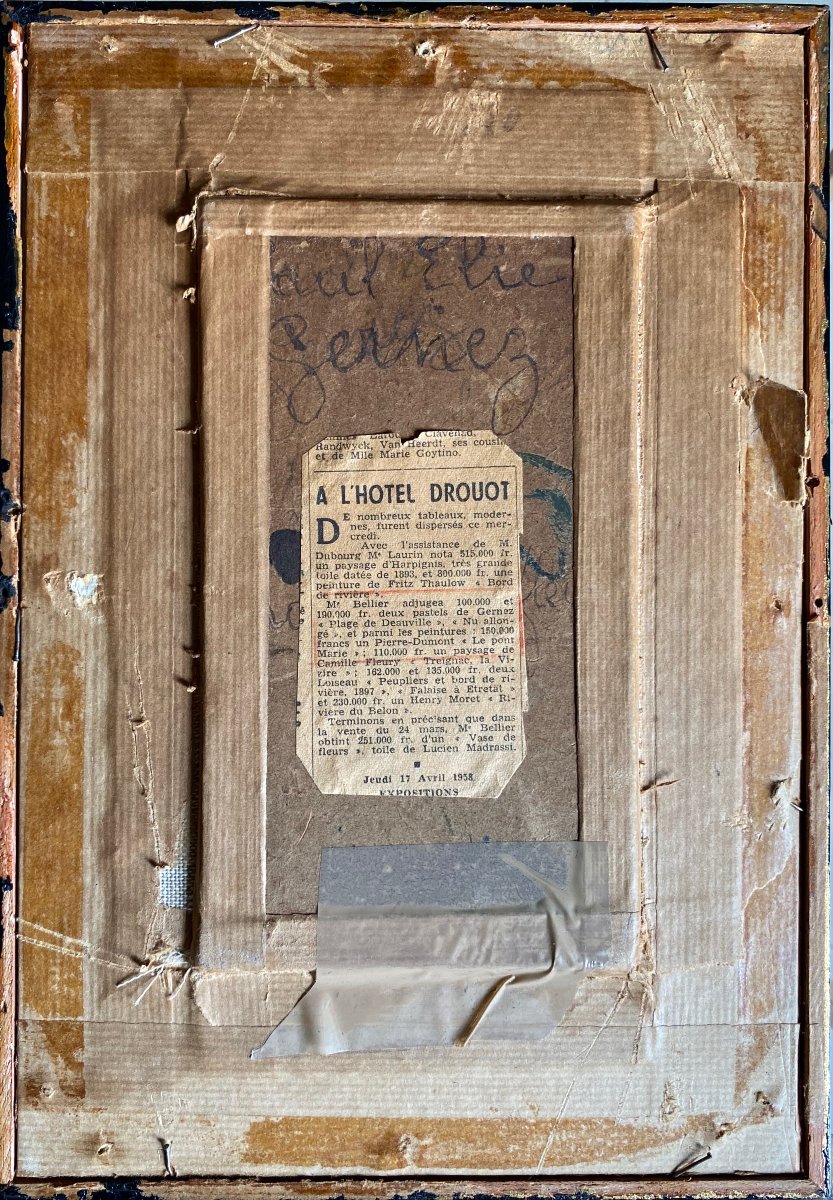 aul Elie
Gernez
Handwyck, Van Heerdt, ses cousins
et de Mlle Marie Goytino.
A L'HOTEL DROUOT
DE nombreux tableaux, moder-
nes, furent dispersés ce mer-
credi.
Avec l'assistance de M.
Dubourg Me Laurin nota 515.000 fr.
un paysage d'Harpignis, très grande
toile datée de 1893, et 800.000 fr. une
peinture de Fritz Thaulow « Bord
de rivière ».
Me Bellier adjugea 100.000 et
190.000 fr. deux pastels de Gernez
« Plage de Deauville », « Nu allon-
gé », et parmi les peintures : 150.000
francs un Pierre-Dumont « Le pont
Marie » ; 110.000 fr. un paysage de
Camille Fleury « Treignac, la Vé-
zire » ; 162.000 et 135.000 fr. deux
Loiseau « Peupliers et bord de ri-
vière, 1897 », « Falaise à Etretat »
et 230.000 fr. un Henry Moret « Ri-
vière du Belon ».
Terminons en précisant que dans
la vente du 24 mars, Me Bellier
obtint 251.000 fr. d'un « Vase de
fleurs », toile de Lucien Madrassi.
Jeudi 17 Avril 1958
EXPOSITIONS